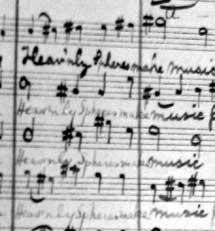 Heav'nly Spheres make music
Heavenly Spheres make music
Heavenly Spheres make music
Heavenly Spheres make music